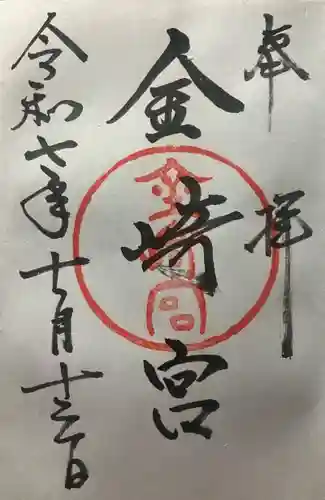 奉拝
金崎宮
金崎宮
令和七年十一月十三日